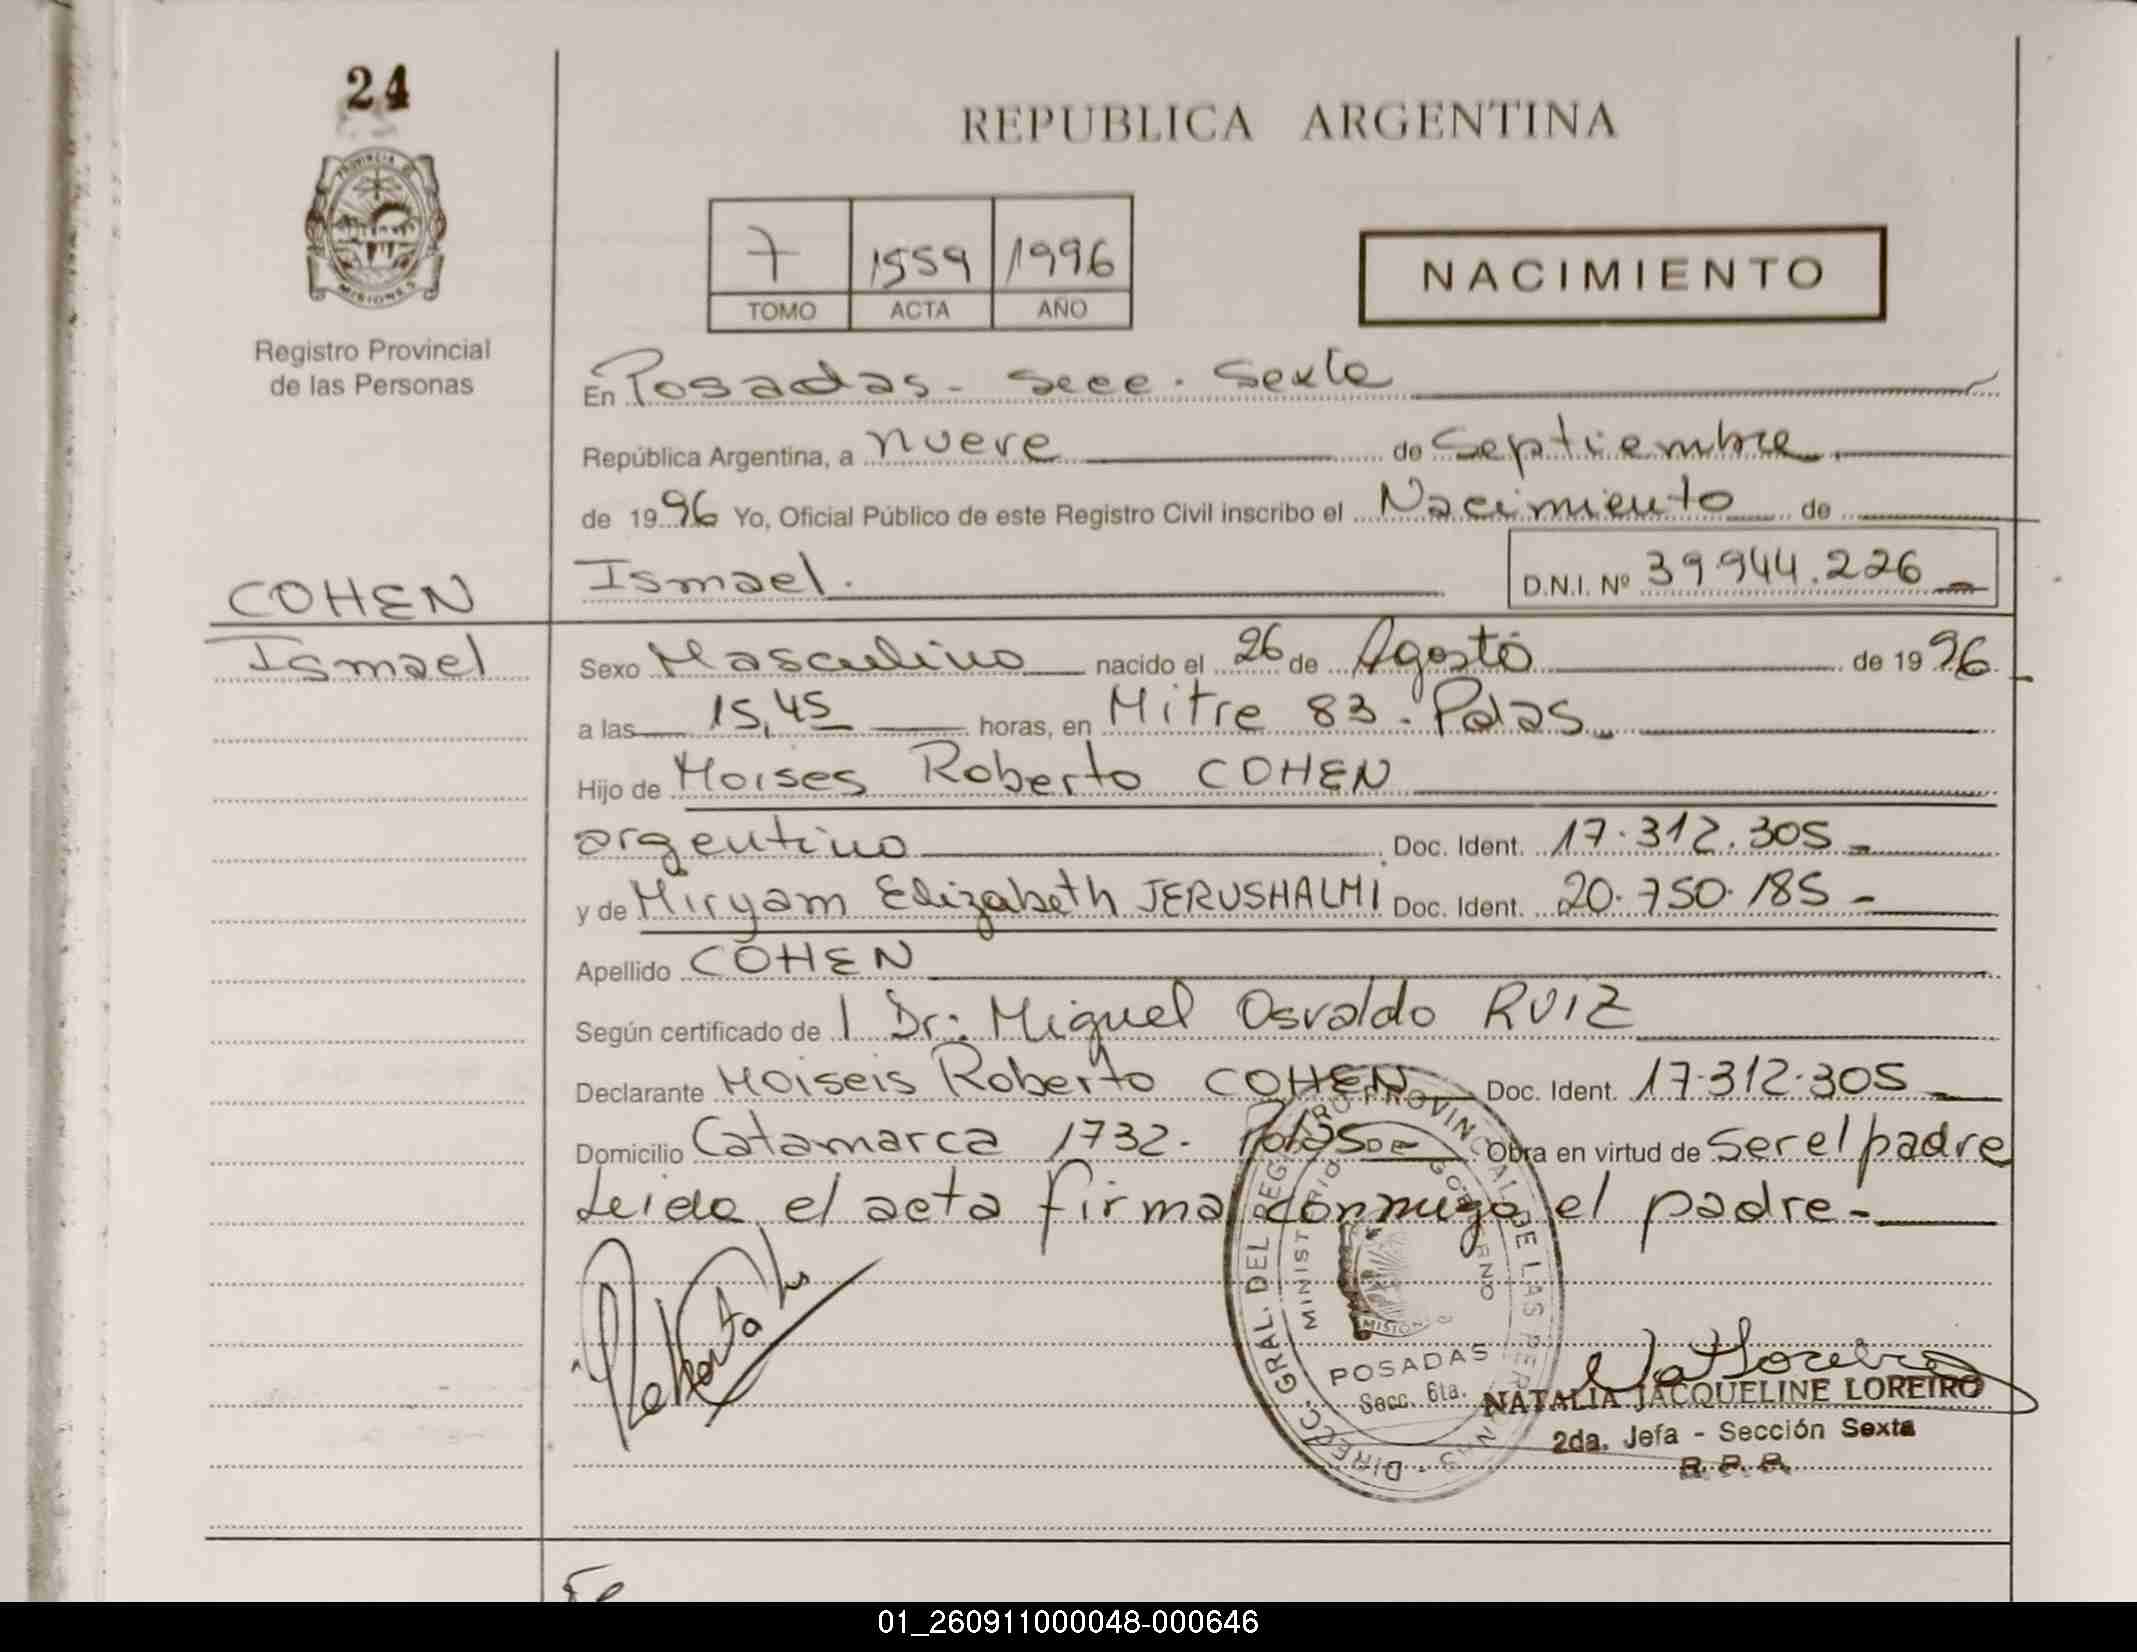 24
PROVINCIA DE
MISIONES
Registro Provincial
de las Personas
COHEN
Ismael
REPUBLICA ARGENTINA
7 1559 1996
TOMO ACTA AÑO
NACIMIENTO
En Posadas - Secc. Sexta
República Argentina, a nueve de Septiembre
de 1996 Yo, Oficial Público de este Registro Civil inscribo el Nacimiento de
Ismael. D.N.I. Nº 39.944.226
Sexo Masculino nacido el 26 de Agosto de 1996
a las 15,45 horas, en Mitre 83 - Pdas
Hijo de Moises Roberto COHEN
argentino Doc. Ident. 17.312.305
y de Miryam Elizabeth JERUSHALMI Doc. Ident. 20.750.185
Apellido COHEN
Según certificado de l Dr: Miguel Osvaldo RUIZ
Declarante Moiseis Roberto COHEN Doc. Ident. 17.312.305
Domicilio Catamarca 1732 - Pdas Obra en virtud de Ser el padre
Leida el acta firma conmigo el padre -
DIRECC. GRAL. DEL REGISTRO PROVINCIAL DE LAS PERSONAS
MINISTERIO DE GOBIERNO
MISIONES
POSADAS
Secc. 6ta.
NATALIA JACQUELINE LOREIRO
2da. Jefa - Sección Sexta
R. P. P.
01_260911000048-000646